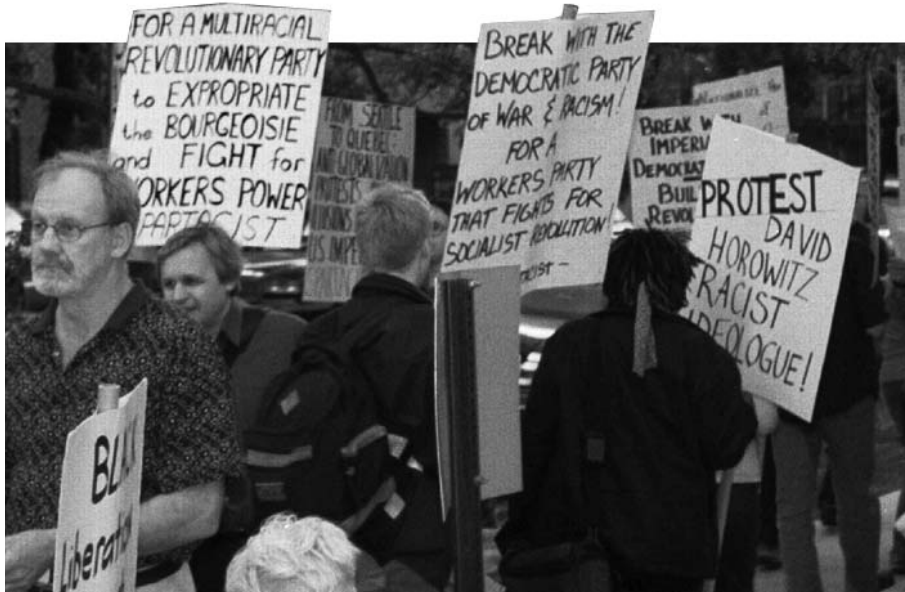 FOR A MULTIRACIAL
REVOLUTIONARY PARTY
to EXPROPRIATE
the BOURGEOISIE
and FIGHT for
WORKERS POWER
PARTACIST
FROM SEATTLE
TO QUEBEC
GLOBALIZATION
BREAK WITH THE
DEMOCRATIC PARTY
OF WAR & RACISM!
FOR A
WORKERS PARTY
THAT FIGHTS FOR
SOCIALIST REVOLUTION!
BREAK WITH
IMPERI
DEMOCRAT
BUIL
REVOL
PROTEST
DAVID
HOROWITZ
RACIST
IDEOLOGUE!
BLACK
Liberation